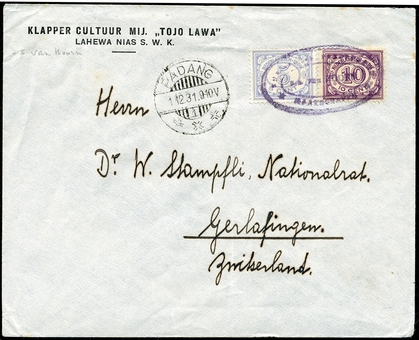 KLAPPER CULTUUR MIJ. „TOJO LAWA"
LAHEWA NIAS S. W. K.
PADANG
1.12.31.9-10V
1
10
Herrn
Dr. W. Stampfli, Nationalrat.
Gerlafingen.
Zwitserland.